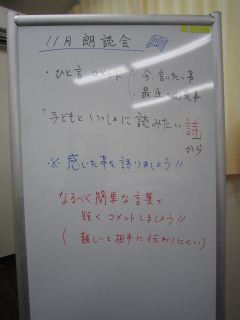 11月 朗読会
・ひと言コメント ・今、言いたい事
・最近の出来事
「子どもといっしょに読みたい詩」
から
※ 感じた事を語りましょう!!
なるべく簡単な言葉で
短くコメントしましょう!!
(難しいと相手に伝わりにくい)